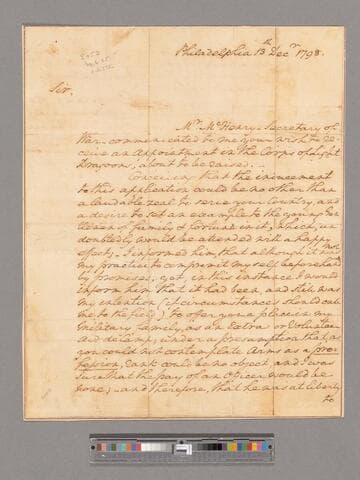 Philadelphia 13th Decr 1798.
Sir,
Mr McHenry, Secretary of
War communicated to me your wish to re-
ceive an Appointment in the Corps of Light
Dragoons, about to be raised.
Conceiving that the inducement
to this application could be no other than
a laudable zeal to serve your Country, and
a desire to set an example to the young Gen
tlemen of family & fortune in it, which, un-
doubtedly, would be attended with a happy
effect; I informed him that although it is not
my practice to compromit myself beforehand
by promises, yet in this instance I would
inform him that it had been and still was
my intention (if circumstances should call
me to the field) to offer you a place in my
Military family, as an Extra or Volunteer
Aid de camp; under a presumption that, as
you could not contemplate Arms as a pro-
fession, rank could be no object and I was
sure that the pay of an Officer would be
none;—and therefore, that he was at liberty
to